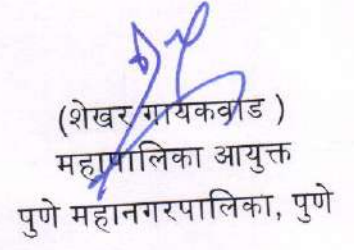 (शेखर गायकवाड )
महापालिका आयुक्त
पुणे महानगरपालिका, पुणे